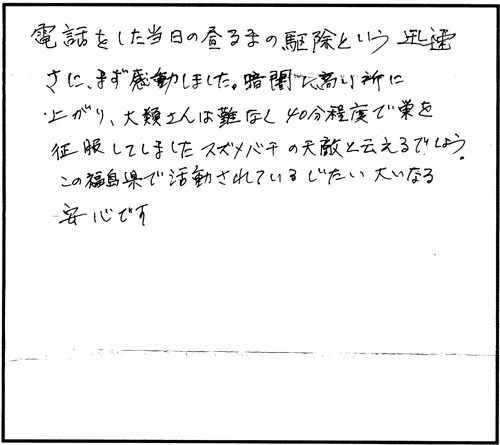 電話をした当日の昼るまの駆除という 迅速
さに、まず感動しました。暗闇に高い所に
上がり、大類さんは難なく40分程度で巣を
征服してしました スズメバチの天敵と云えるでしょう。
この福島県で活動されているじたい 大いなる
安心です